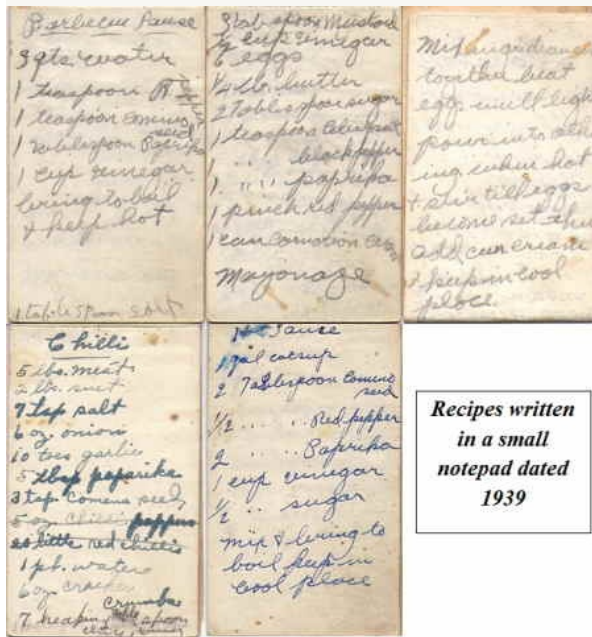 Barbecue Sause
3 qts water
1 teaspoon R pepper
1 teaspoon comino seed
1 tablespoon Paprika
1 cup vinegar
bring to boil
& keep hot
1 tablespoon salt
3 tablespoon Mustard
1/2 cup vinegar
6 eggs
1/4 lb. butter
2 Tablespoon sugar
1 teaspoon celery salt
1 .. .. black pepper
1 .. .. paprika
1 pinch red pepper
1 can carnation cream
Mayonage
Mix ingredients
together beat
eggs until light
pour into
when hot
& stir till eggs
become set then
add can cream
& keep in cool
place
Chilli
5 lbs. meat
2 lbs. suet
7 tsp salt
6 oz. onion
10 toes garlic
5 tbsp paprika
3 tsp comino seed
5 oz chilli peppers
20 little red chillis
1 pt. water
6 oz. cracker
crumbs
7 heaping table spoon
Sauce
1 gal catsup
2 Tablespoon comino
seed
1/2 .. .. Red pepper
2 .. .. Paprika
1 cup vinegar
1/2 .. sugar
mix & bring to
boil keep in
cool place
Recipes written
in a small
notepad dated
1939